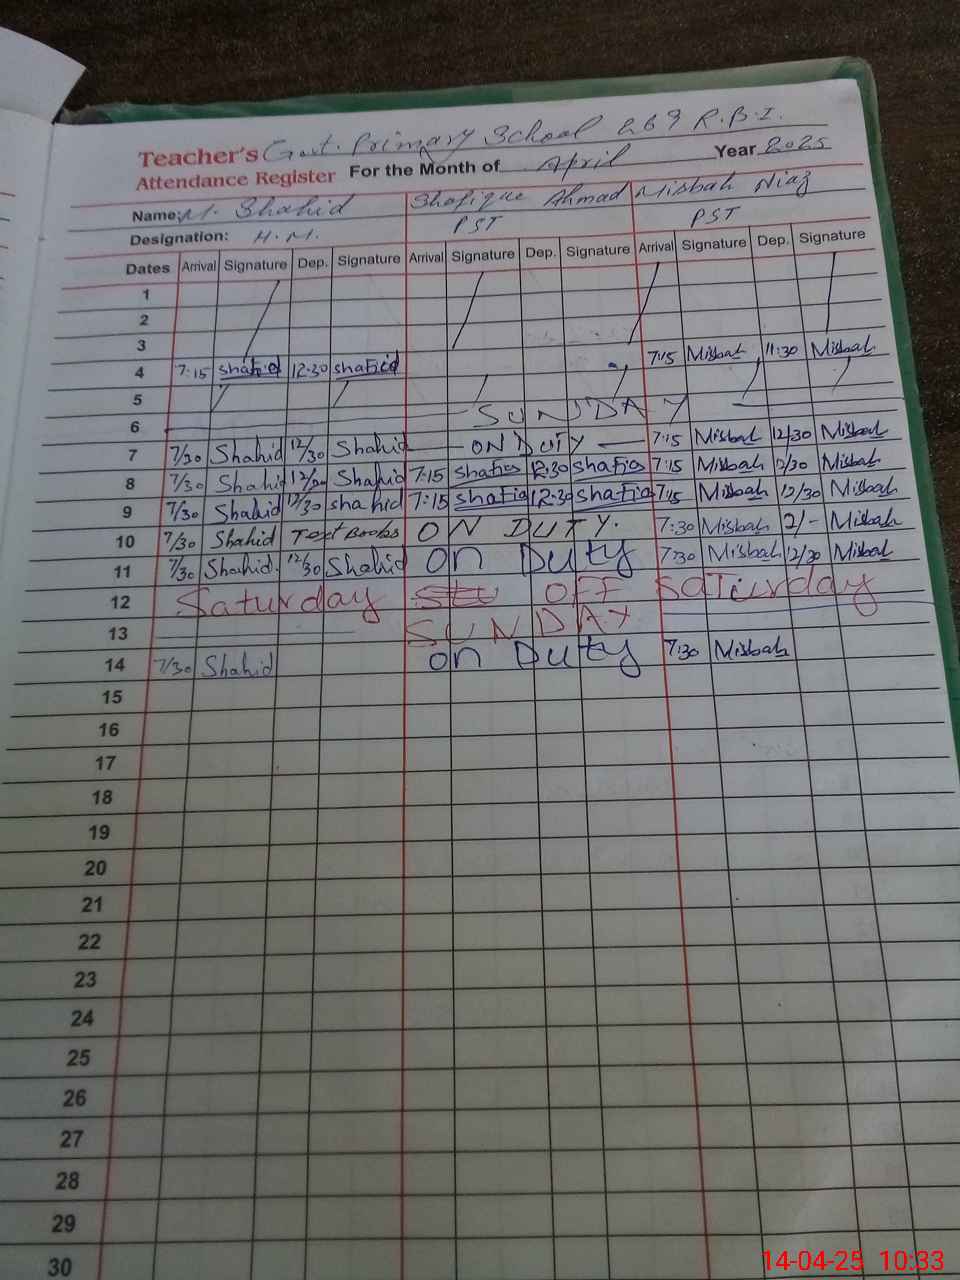 Teacher's Govt. Primary School 269 R.B.I.
Attendance Register For the Month of April Year 2025
Name: M. Shahid Shafique Ahmad Misbah Niaz
Designation: H.M. PST PST
Dates Arrival Signature Dep. Signature Arrival Signature Dep. Signature Arrival Signature Dep. Signature
1
2
3
4 7:15 12:30 7:15 Misbah 11:30 Misbah
5
6 SUNDAY
7 7/30 Shahid 12/30 Shahid ON DUTY 7:15 Misbah 12/30 Misbah
8 7/30 Shahid Shahid 7:15 shafiq 12:30 shafiq 7:15 Misbah 12/30 Misbah
9 7/30 Shahid 12/30 shahid 7:15 shafiq 12:30 shafiq 7:15 Misbah 12/30 Misbah
10 7/30 Shahid Text Books ON DUTY. 7:30 Misbah 2/- Misbah
11 7/30 Shahid. 12/30 Shahid on Duty 7:30 Misbah 12/30 Misbah
12 Saturday OFF Saturday
13 SUNDAY
14 7/30 Shahid on Duty 7:30 Misbah
15
16
17
18
19
20
21
22
23
24
25
26
27
28
29
30
14-04-25 10:33